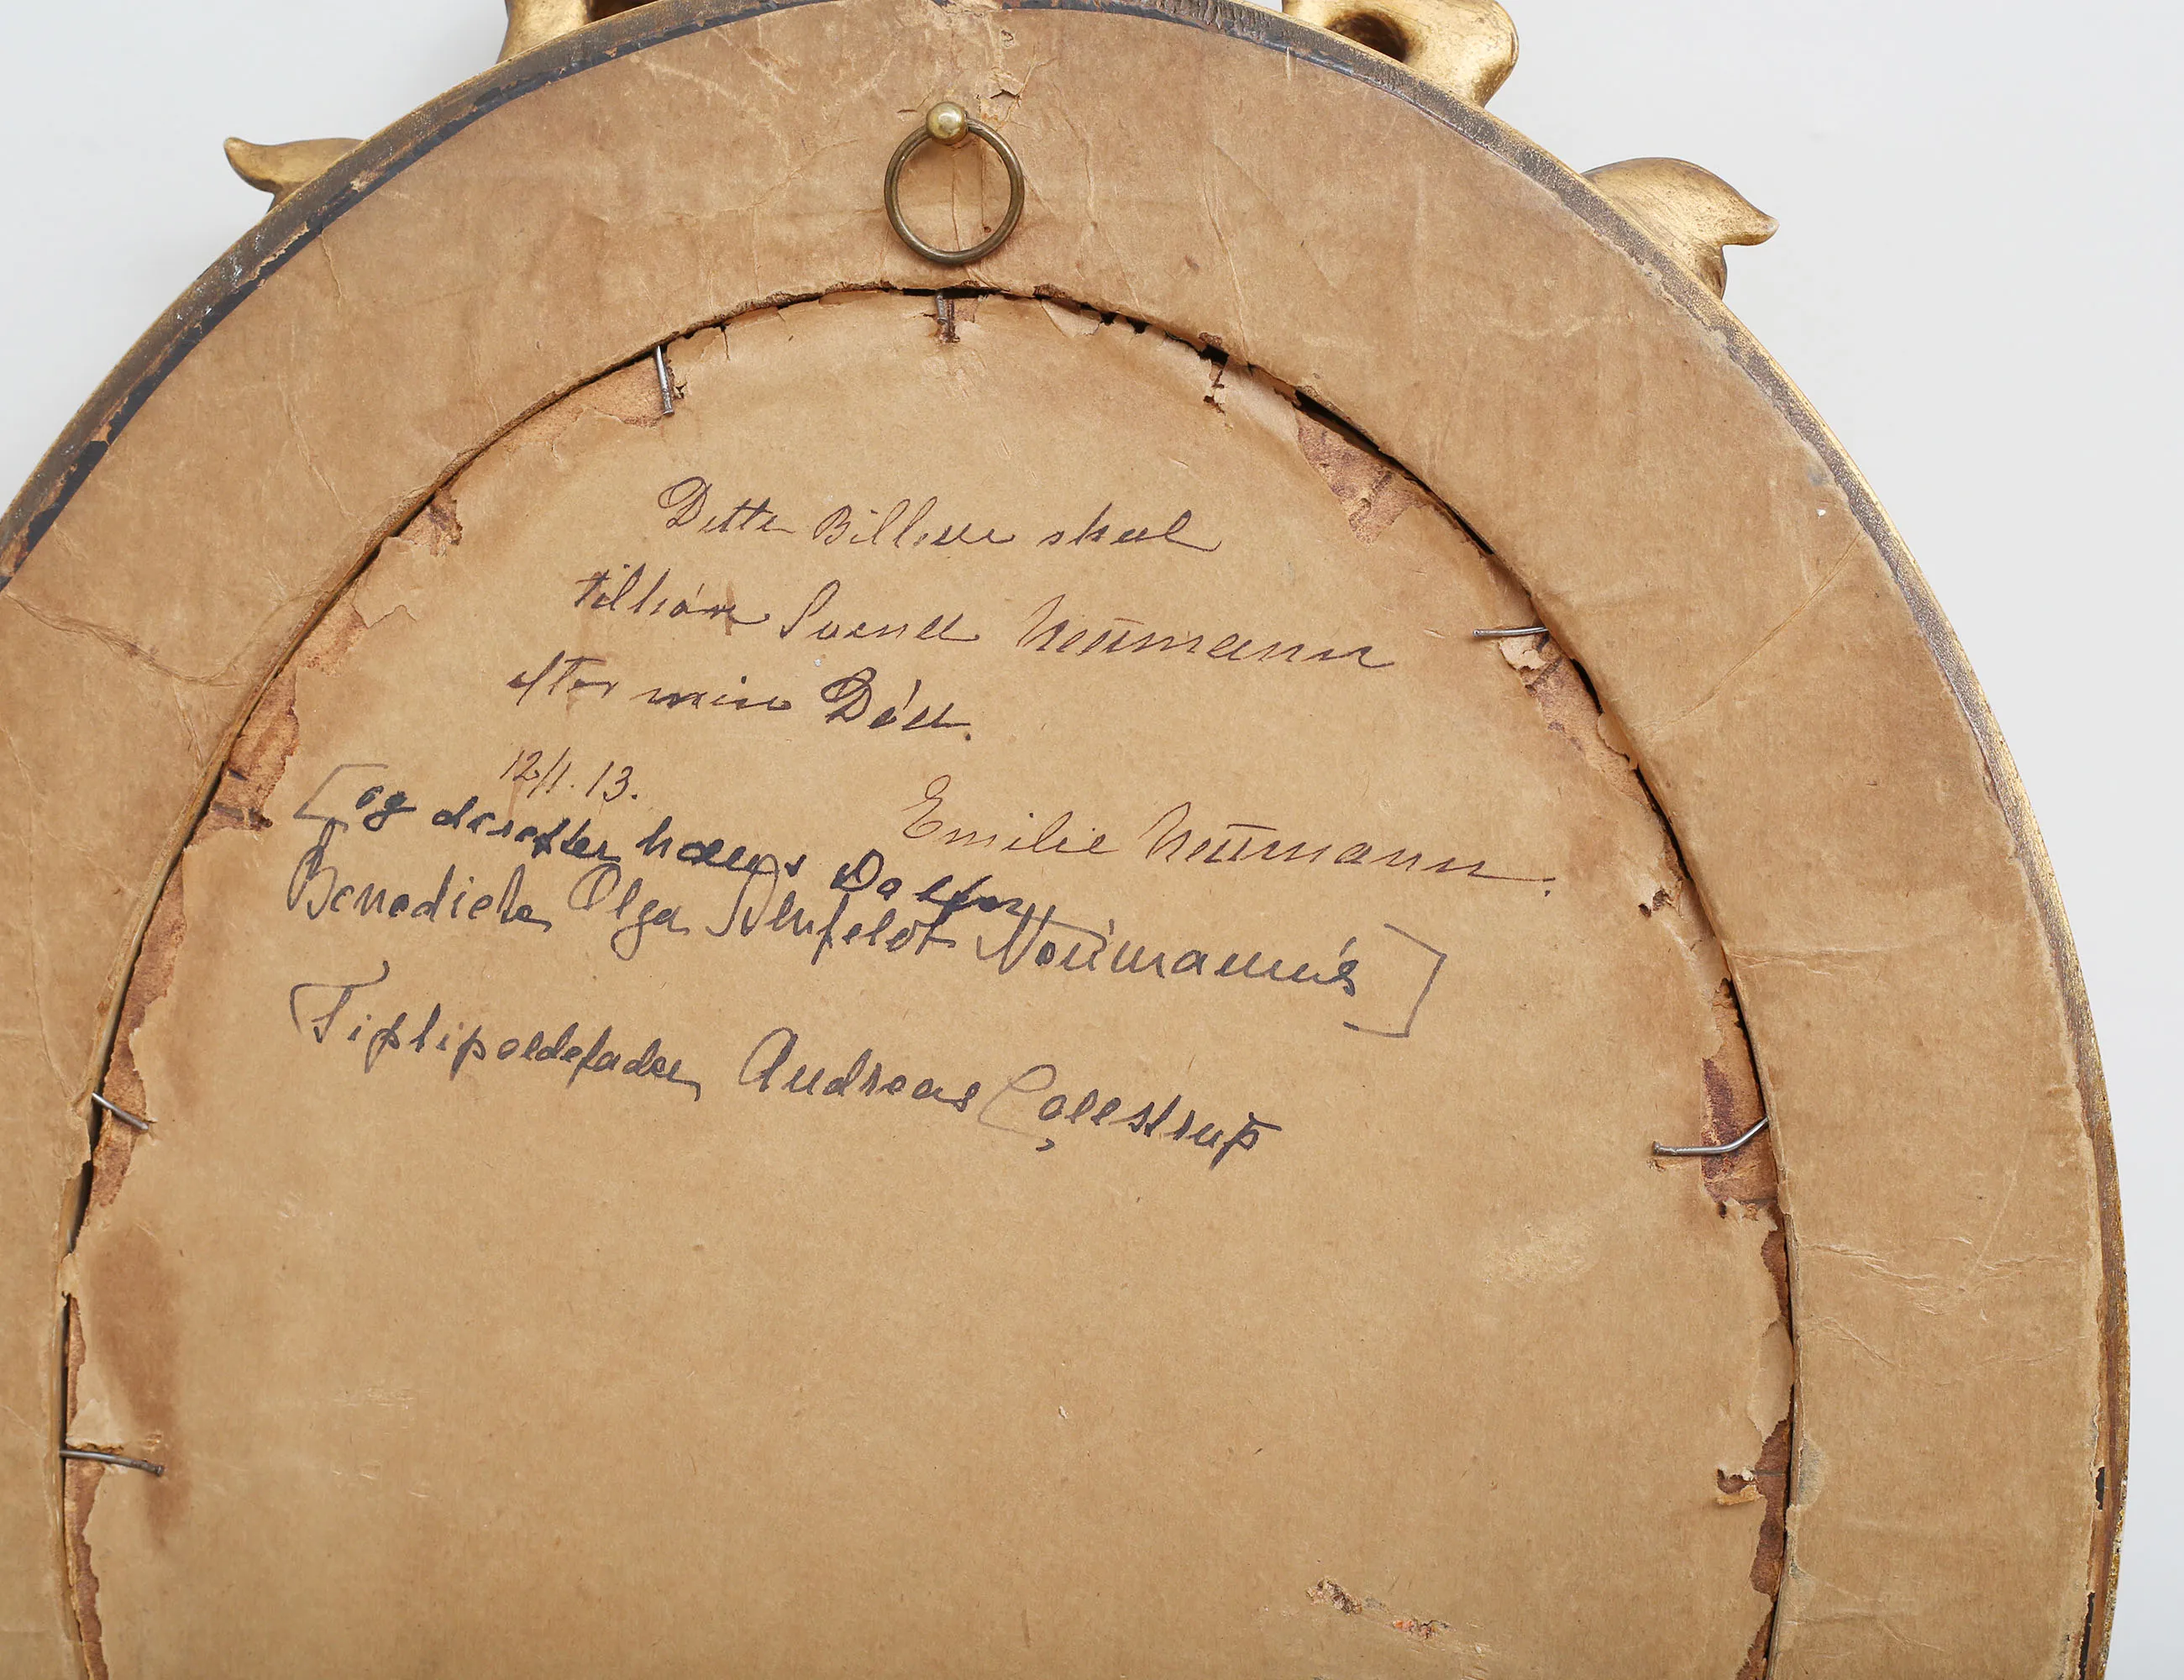 Dette Billede skal
tilhøre Svend Neümann
efter min Død.
12/1. 13.
Emilie Neümann.
[og derefter hans Datter
Benedicte Olga Neümann's]
Tiptipoldefader, Andreas